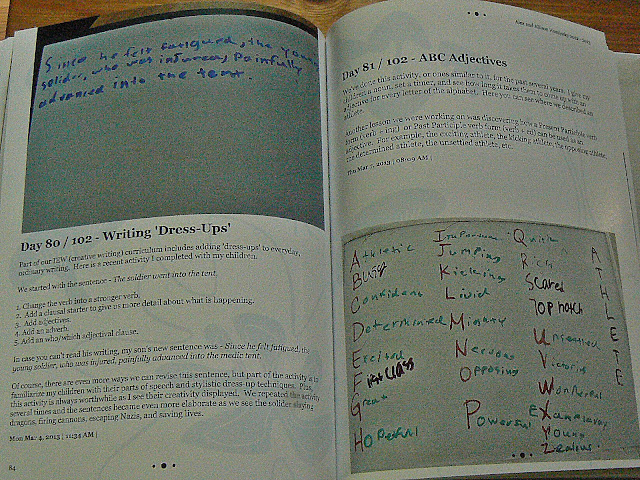 Since he felt fatigued, the young
solider, who was injured, painfully
advanced into the tent.
Day 80 / 102 - Writing 'Dress-Ups'
Part of our IEW (creative writing) curriculum includes adding 'dress-ups' to everyday,
ordinary writing. Here is a recent activity I completed with my children.
We started with the sentence - The soldier went into the tent.
1. Change the verb into a stronger verb.
2. Add a clausal starter to give us more detail about what is happening.
3. Add adjectives.
4. Add an adverb.
5. Add an who/which adjectival clause.
In case you can't read his writing, my son's new sentence was - Since he felt fatigued, the
young soldier, who was injured, painfully advanced into the medic tent.
Of course, there are even more ways we can revise this sentence, but part of the activity is to
familiarize my children with their parts of speech and stylistic dress-up techniques. Plus,
this activity is always worthwhile as I see their creativity displayed. We repeated the activity
several times and the sentences became even more elaborate as we see the solider slaying
dragons, firing cannons, escaping Nazis, and saving lives.
Mon Mar 4, 2013 | 11:34 AM |
84
Day 81 / 102 - ABC Adjectives
We've done this activity, or ones similar to it, for the past several years. I give my
children a noun, set a timer, and see how long it takes them to come up with an
adjective for every letter of the alphabet. Here you can see where we described an
athlete.
And the lesson we were working on was discovering how a Present Participle verb
form (verb + ing) or Past Participle verb form (verb + ed) can be used as an
adjective. For example, the exciting athlete, the kicking athlete, the opposing athlete,
the determined athlete, the unsettled athlete, etc.
Thu Mar 7, 2013 | 08:09 AM |
Athletic
Busy
Confident
Determined
Excited
First Class
Great
Hopeful
Jumping
Kicking
Livid
Mighty
Nervous
Opposing
Powerful
Rich
Scared
Top notch
Unsettled
Wonderful
Young
Zealous
ATHLETE